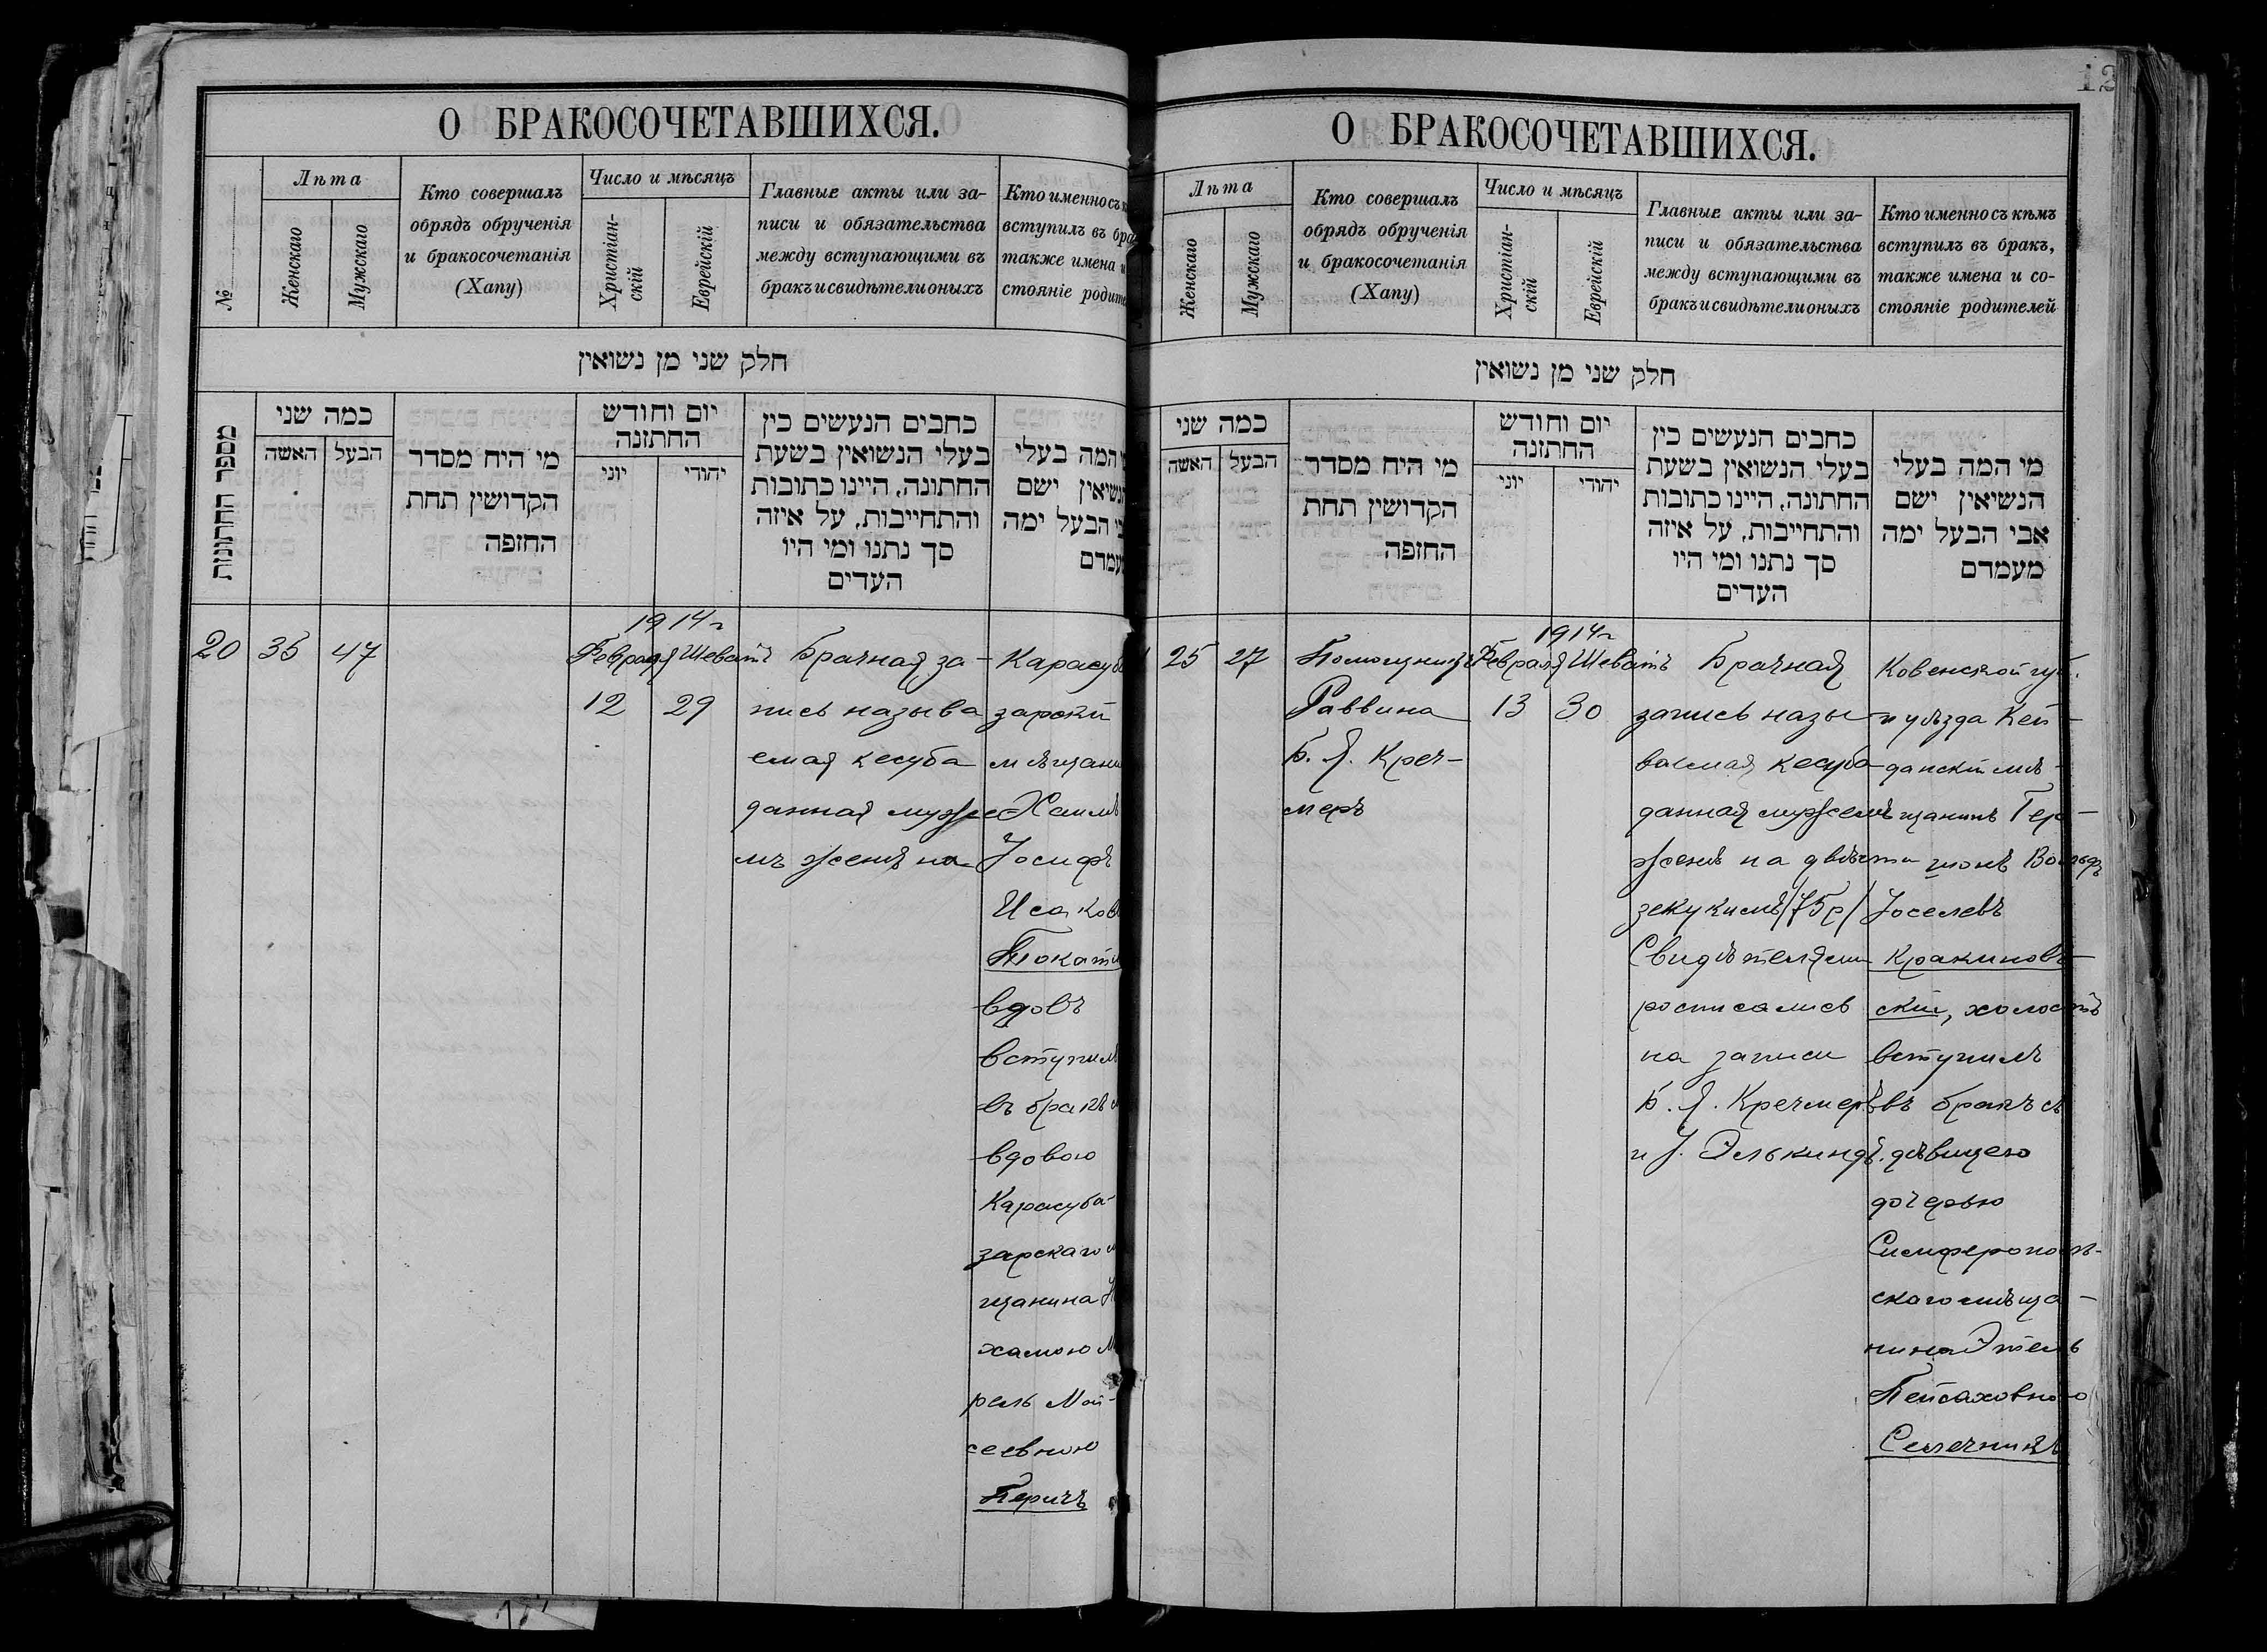 О БРАКОСОЧЕТАВШИХСЯ.
№
Лѣта
Женскаго
Мужскаго
Кто совершалъ
обрядъ обрученія
и бракосочетанія
(Хапу)
Число и мѣсяцъ
Христіан-
скій
Еврейскій
Главные акты или за-
писи и обязательства
между вступающими въ
бракъ и свидѣтели оныхъ
Кто именно съ
вступилъ въ бра
также имена и
стояніе родите
חלק שני מן נשואין
מספר החתונות
כמה שני
האשה
הבעל
מי היח מסדר
הקדושין תחת
החזפה
יום וחודש
החתזנה
יוני
יהודי
כחבים הנעשים כין
בעלי הנשואין בשעת
החתונה, היינו כתובות
והתחייבות, על איזה
סך נתנו ומי היו
העדים
המה בעלי
הנשיאין ישם
הבעל ימה
מעמדם
20
35
47
1914г
Февраля Шеватъ
12 29
Брачная за-
пись называ
емая кесуба
данная муже
мъ женѣ на
Карасуба
зарскій
мѣщани
Хаимъ
Іосифъ
Исаков
Токат
вдовъ
вступилъ
въ бракъ
вдовою
Карасуба-
зарскаго м
щанина
хамою М
рель Мой-
сеевною
Перичъ
12
О БРАКОСОЧЕТАВШИХСЯ.
Лѣта
Женскаго
Мужскаго
Кто совершалъ
обрядъ обрученія
и бракосочетанія
(Хапу)
Число и мѣсяцъ
Христіан-
скій
Еврейскій
Главные акты или за-
писи и обязательства
между вступающими въ
бракъ и свидѣтели оныхъ
Кто именно съ кѣмъ
вступилъ въ бракъ,
также имена и со-
стояніе родителей
חלק שני מן נשואין
כמה שני
האשה
הבעל
מי היח מסדר
הקדושין תחת
החזפה
יום וחודש
החתזנה
יוני
יהודי
כחבים הנעשים כין
בעלי הנשואין בשעת
החתונה, היינו כתובות
והתחייבות, על איזה
סך נתנו ומי היו
העדים
מי המה בעלי
הנשיאין ישם
אבי הבעל ימה
מעמדם
25
27
Помощникъ
Раввина
Б. Я. Креч-
меръ
1914г
Февраля Шеватъ
13 30
Брачная
запись назы
ваемая кесуба
данная мужемъ
женѣ на двѣсти
зекукимъ /75р/
Свидѣтелями
росписались
на записи
Б. Я. Кречмеръ
и І. Элькиндъ.
Ковенской губ.
и уѣзда Кей-
данскій мѣ-
щанинъ Гер-
шонъ Вольфъ
Іоселевъ
Кракинов-
скій, холостъ
вступилъ
въ бракъ съ
дѣвицею
дочерью
Симферополь-
скаго мѣща-
нина Этель
Пейсаховною
Семечникъ